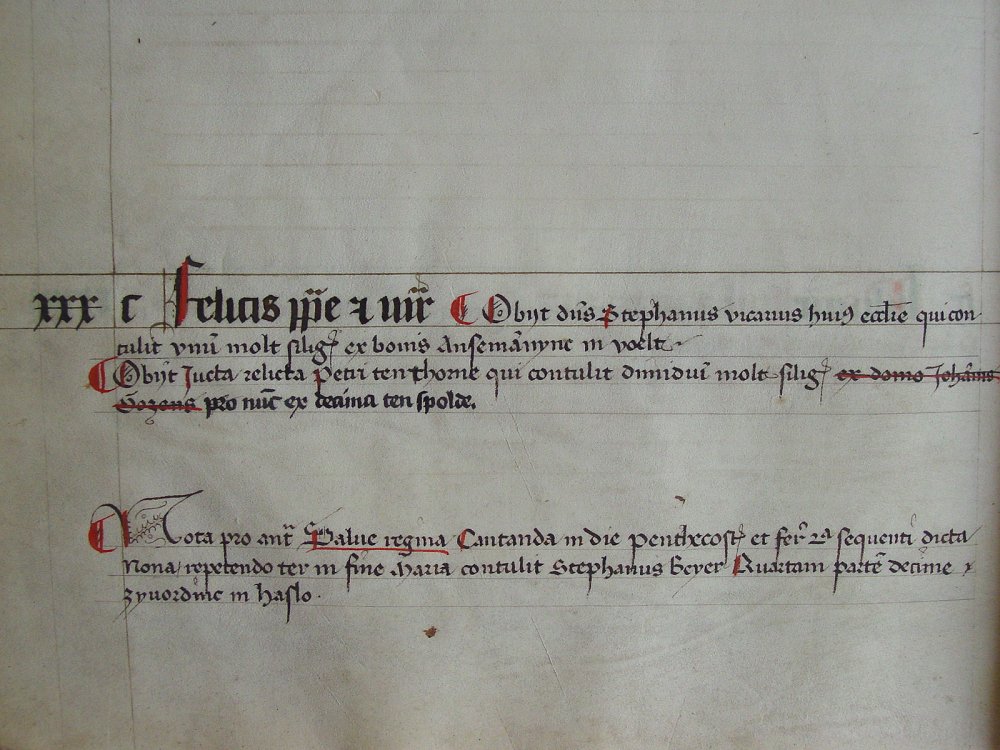 xxx c Felicis ppe et mr̃ Obijt dn̄s Stephanus vicarius huiꝰ eccl̄ie qui con
tulit vnū molt silig̃ ex bonis Ansemānync in voelt
Obijt Jucta relicta Petri ten thorne qui contulit dimidiū molt silig̃ ex domo Johānis
Gozens pro nūc ex decima ten spolde.
Nota pro ant̃ Salue regina Cantanda in die penthecost̃ et fer̃ 2ᵃ sequenti dicta
Nona repetendo ter in fine Maria contulit Stephanus Beyer Quartam partē decime
zyuordinc in haslo.